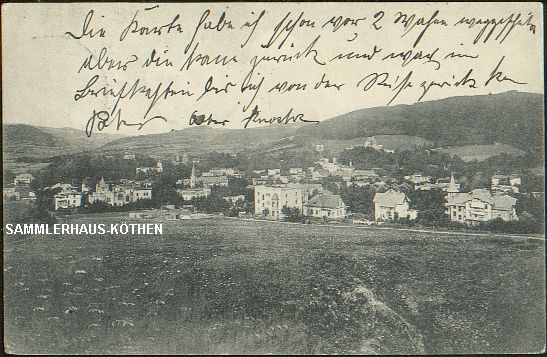 Die Karte habe ich schon vor 2 Wochen weggeschickt
aber die kam zurück und war im
Briefkasten bis ich von der Reise zurück kam
SAMMLERHAUS-KÖTHEN